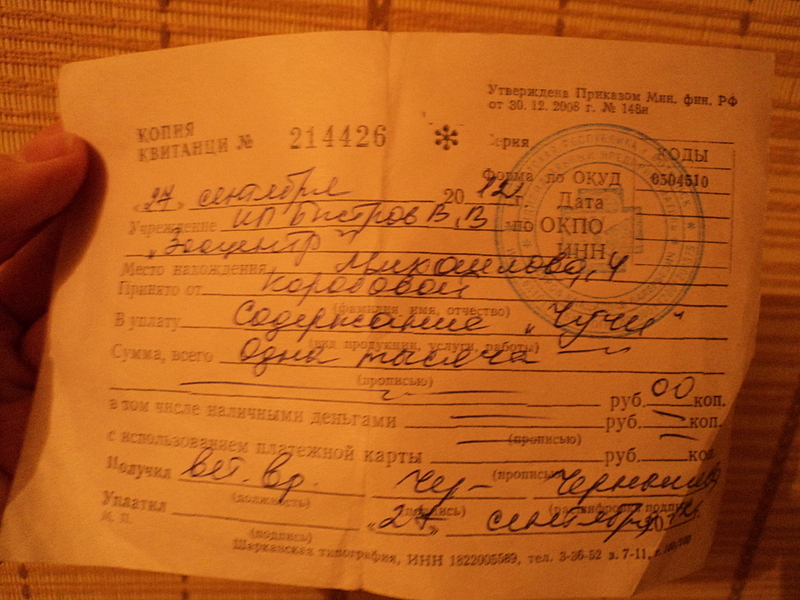 Утверждена Приказом Мин. фин. РФ
от 30. 12. 2008 г. № 148н
КОПИЯ
КВИТАНЦИ № 214426 ✻ Серия
КОДЫ
Форма по ОКУД 0504510
„27„ сентября 2012 г. Дата
Учреждение ИП Быстров В.В по ОКПО
„Зооцентр" ИНН
Место нахождения Михайлова, 4
Принято от Коробовой
(фамилия, имя, отчество)
В уплату Содержание „Чучи"
(вид продукции, услуги, работы)
Сумма, всего Одна тысяча
(прописью)
руб. 00 коп.
в том числе наличными деньгами руб. коп.
(прописью)
с использованием платежной карты руб. коп
(прописью)
Получил вет. вр.
(должность) (подпись) (расшифровка подписи)
Уплатил „27„ сентября 2012
(подпись)
М. П.
Шарканская типография, ИНН 1822005589, тел. 3-36-52 з. 7-11,